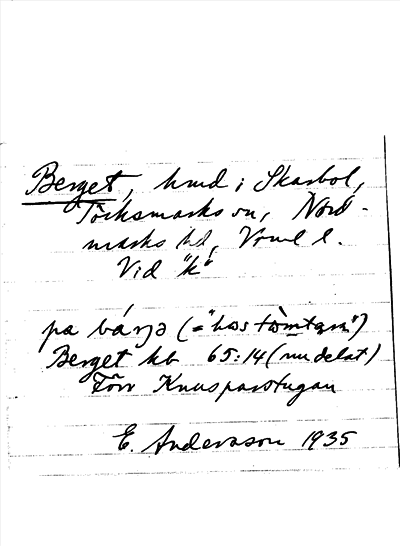 Berget, hmd i Skarbol,
Töcksmarks sn, Nord-
marks hd, Vrml l.
Vid "k"
pa bárjə (="hos tòmtarn")
Berget kb 65:14 (nu delat)
Förr Knusparstugan
E. Andersson 1935